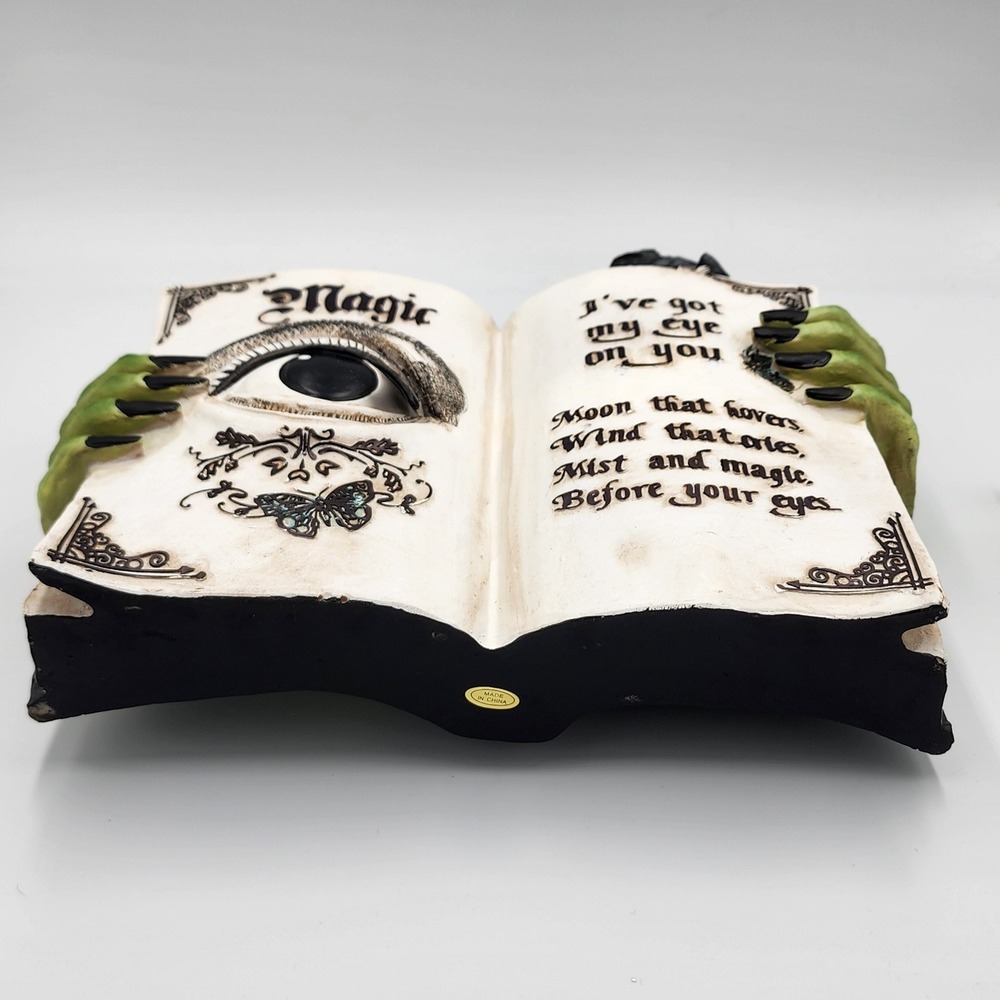 Magic
I've got
my eye
on you
Moon that hovers,
Wind that cries,
Mist and magic,
Before your eyes.
MADE
IN CHINA